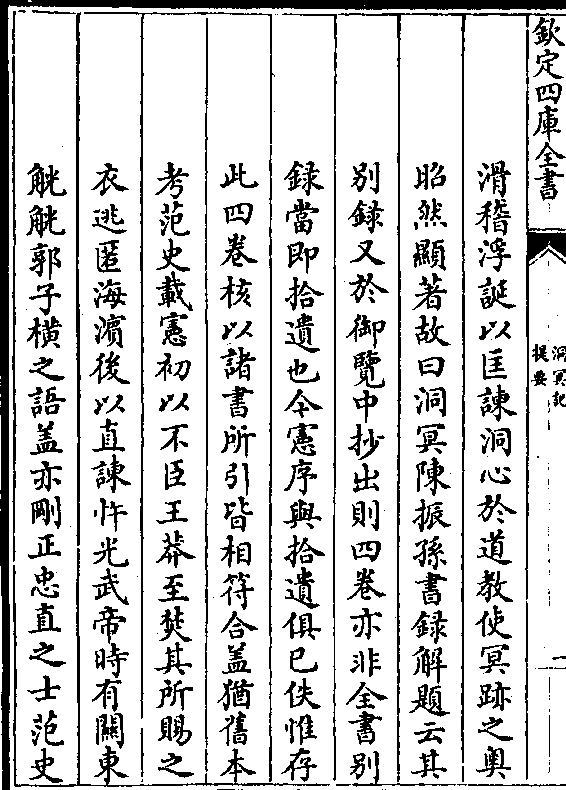 欽定四庫全書
洞冥記
提要
一
滑稽浮誕以匡諫洞心於道教使冥跡之奥
昭然顯著故曰洞冥陳振孫書録解題云其
别録又於御覽中抄出則四卷亦非全書别
録當即拾遺也今憲序與拾遺俱已佚惟存
此四卷核以諸書所引皆相符合盖猶舊本
考范史載憲初以不臣王莽至焚其所賜之
衣逃匿海濵後以直諫忤光武帝時有關東
觥觥郭子橫之語盖亦剛正忠直之士范史